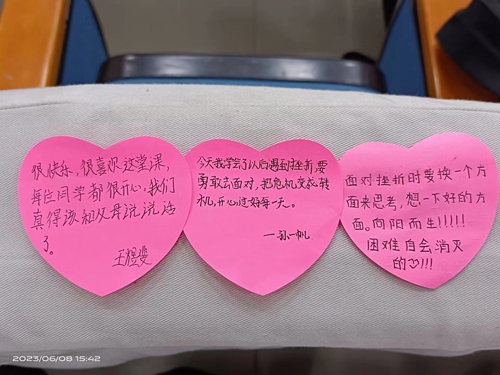 很快乐,很喜欢这堂课,
每位同学都很开心,我们
真得该和父母说说话
了。
今天我学会了以后遇到挫折要
勇敢去面对,把危机变成转
机,开心过好每一天。
一孙一帆
面对挫折时要换一个方
面来思考,想一下好的方
面。向阳而生!!!!!
困难自会消灭
的♡!!!
2023/06/08 15:42